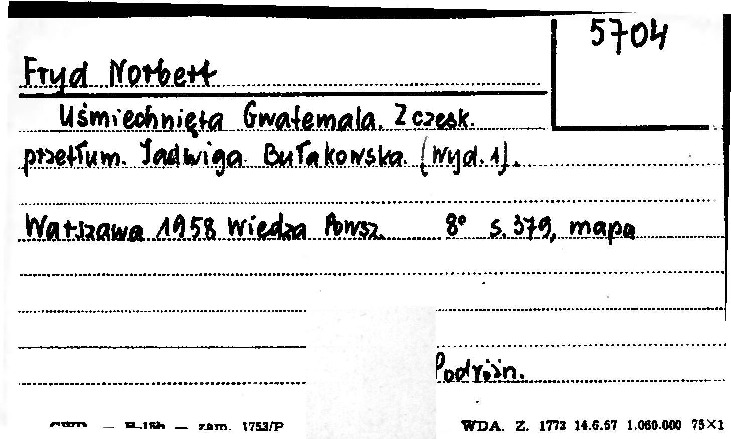 5704
Fryd Norbert
Uśmiechnięta Gwatemala. Z czesk.
przetłum. Jadwiga Bułakowska. (Wyd. 1).
Warszawa 1958 Wiedza Powsz. 8° s. 379, mapa
Podróżn.
zam. 1753/P
WDA. Z. 1773 14.6.57 1.060.000 75×1